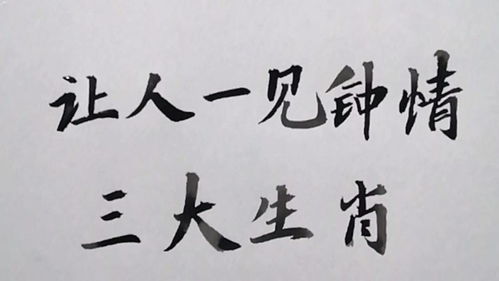 让人一见钟情
三大生肖